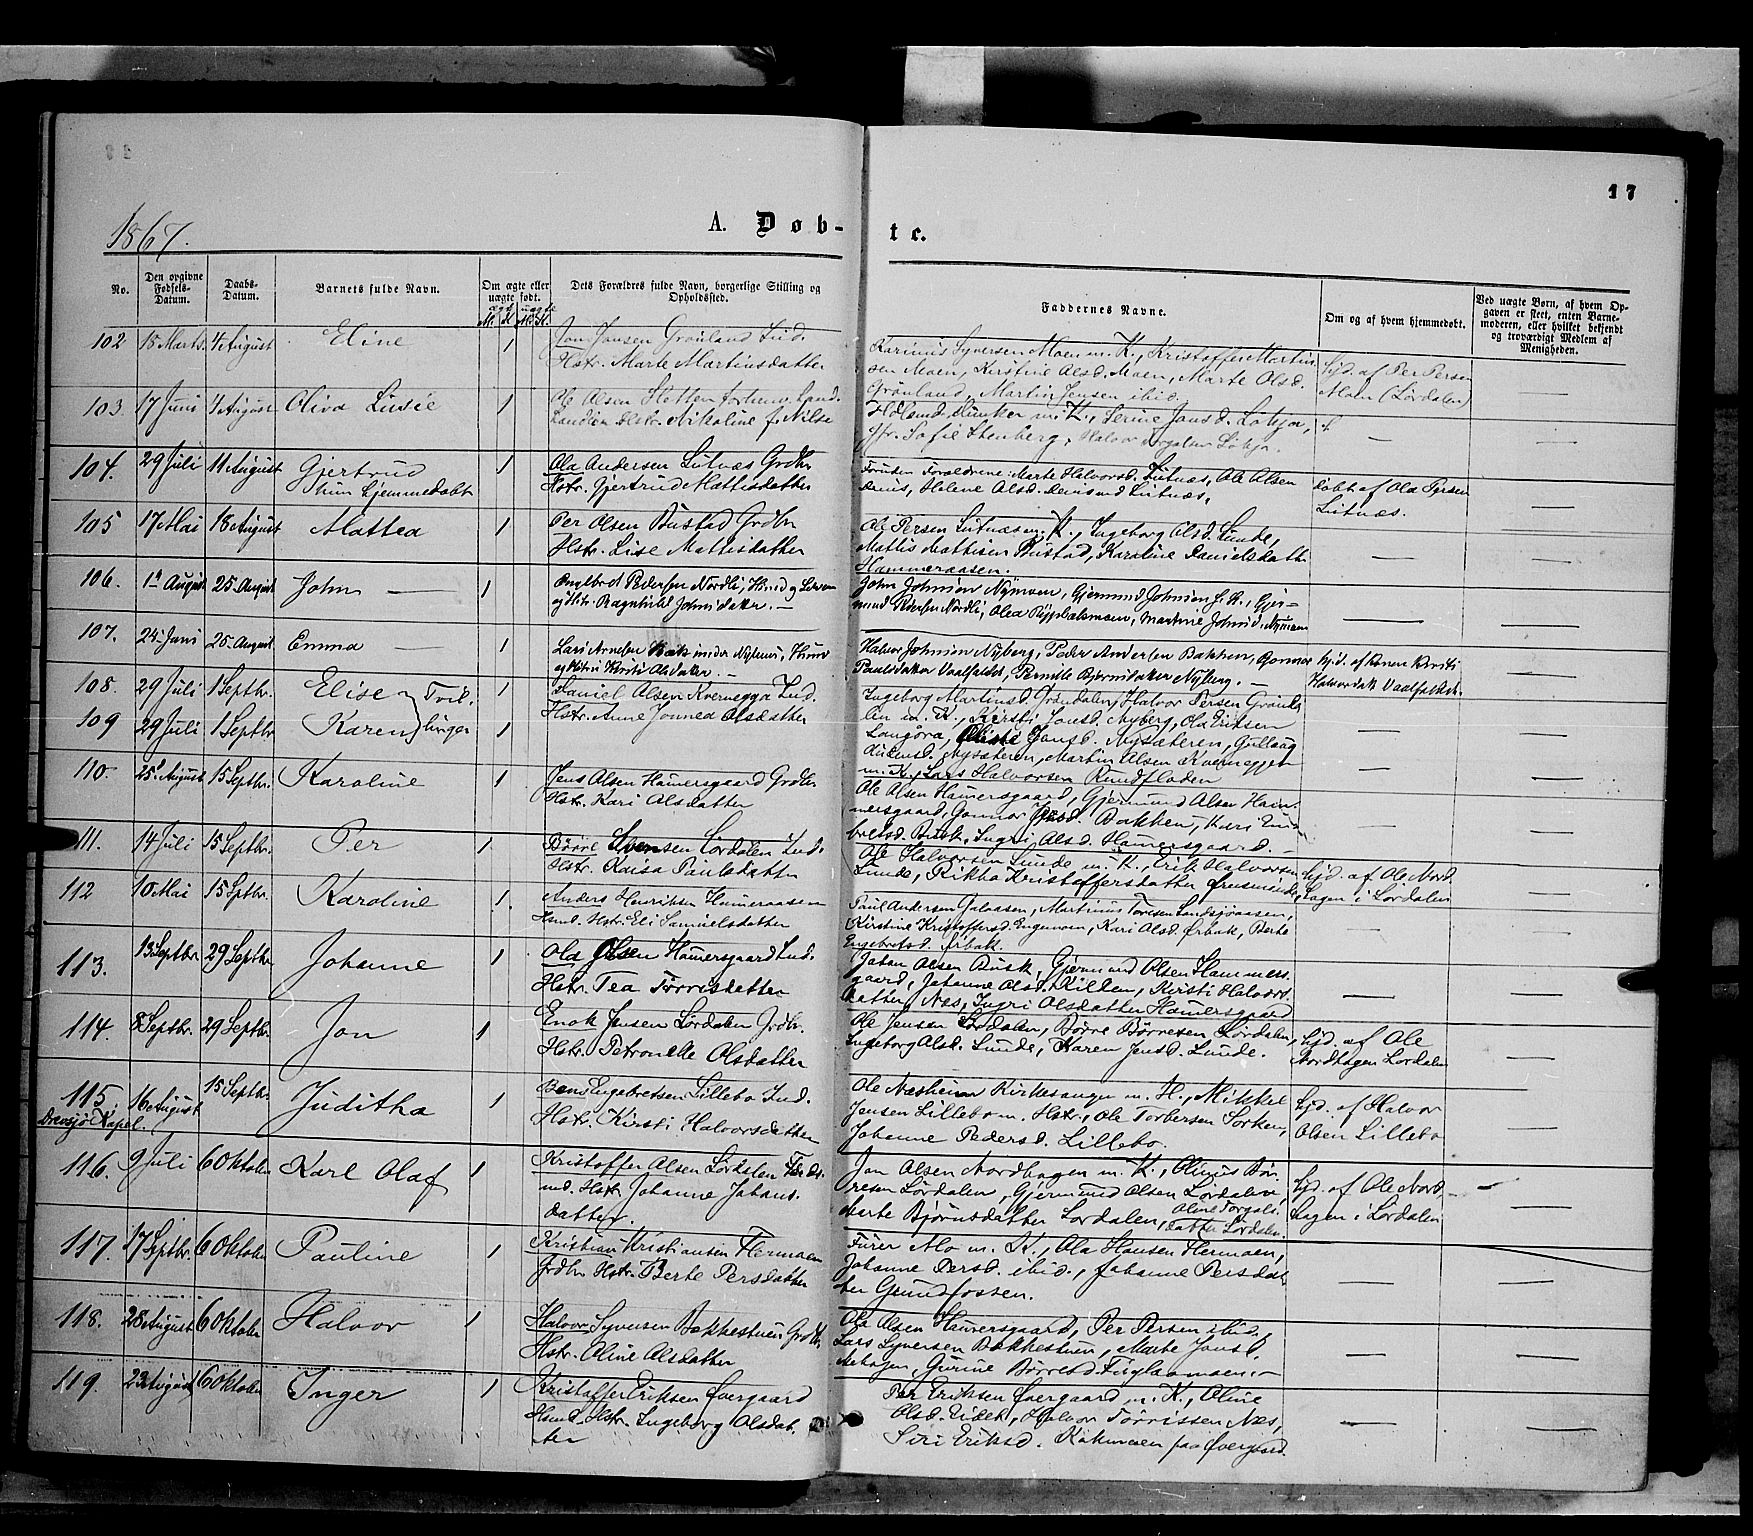 17
1867.
A. Døb-
te.
No.
Den opgivne Fødsels-Datum.
Daabs-Datum.
Barnets fulde Navn.
Om ægte eller uægte født.
ægte uægte
M. K. M. K.
Dets Forældres fulde Navn, borgerlige Stilling og Opholdssted.
Faddernes Navne.
Om og af hvem hjemmedøbt.
Ved uægte Børn, af hvem Opgaven er skeet, enten Barnemoderen, eller hvilket bekjendt og troværdigt Medlem af Menigheden.
102 18 Marts 4 August Eline 1 Jon Jensen Grønland Ind.
Hstr. Marte Martinusdatter
Karinus Syversen Moen m. K., Kristoffer Martin
sen Moen, Kirstine Olsd. Moen, Marte Olsd.
Grønland, Martin Jensen ibid.
hjd. af Per Persen
Moen (Lørdalen)
103. 17 Juni 4 August Oliva Lusie 1 Ole Olsen Sletten
Hstr. Nikoline f. Nilsen
m. K., Serine Jansd.
Sofie Stenberg, Halvor
104. 29 Juli 11 August Gjertrud 1 Ola Andersen Lutnæs Grdbr
hun hjemmedøbt
Hstr. Gjertrud Mattisdatter
Foruden Forældrene: Marte Halvorsd. Lutnæs, Ole Olsen
Helene Olsd. Lutnæs,
døbt af Ola Persen
Lutnæs.
105 17 Mai 18 August Mattea 1 Per Olsen Bustad Grdbr
Hstr. Lise Mattisdatter
Ole Persen Lutnæs m. K., Ingeborg Olsd. Lunde,
Mattis Mattisen Bustad, Karoline Danielsdatter
Hammeraasen.
106. 1ste August 25 August John 1 Engebret Pedersen Nordli, Hmd og Lsm
og Hstr. Ragnhild Johnsdatter. —
John Johnsen Nymoen, Gjermund Johnsen f. K., Gjer-
mund Pedersen Nordli, Olea Johnsd. Nymoen
107. 24 Juni 25 August Emma 1 Lars Arnesen under Nyhuus, Hmd
og Hstru Kirsti Olsdatter. —
Halvor Johnsen Nyberg, Peder Andersen Bakken, Gonnor
Paulsdatter Vaalfaldet, Pernille Bjørnsdatter Nyberg. —
hjd. af Konen Kirsti
Halvorsdtr Vaalfaldet.
108. 29 Juli 1 Septbr. Elise Tvil- 1 Daniel Olsen Kvernegga Ind.
109 29 Juli 1 Septbr Karen linger 1 Hstr. Anne Jonnea Olsdatter
Ingeborg Martinusd. Grøndalen, Halvor Persen Grønda
len m. K., Kirsti Jonsd. Nyberg, Ola Eriksen
Langøra, Jonsd. Nysæteren, Gullaug
Nysæteren, Martin Olsen Kverneggen
m. K., Lars Halvorsen Rundfloden
110. 25 August 15 Septbr. Karoline 1 Jens Olsen Hamersgaard Grdbr
Hstr. Kari Olsdatter
Ole Olsen Hamersgaard, Gjermund Olsen Ham-
mersgaard, Gonnor Bakken, Kari Enge
bretsd. Busk, Ingri Olsd. Hamersgaard. —
111. 14 Juli 15 Septbr. Per 1 Børre Svensen Lørdalen Ind.
Hstr. Kaisa Paulsdatter
Ole Halvorsen Lunde m. K., Erik Halvorsen
Lunde, Rikka Kristoffersdatter
hjd. af Ole Nord
hagen i Lørdalen
112 10 Mai 15 Sptbr. Karoline 1. Anders Henriksen Hameraasen
Hsmd. Hstr. Eli Samuelsdatter
Paul Andersen Galaasen, Martinus Toresen Landsjøaasen,
Kirstine Kristoffersd. Engemoen, Kari Olsd. Ørbak, Berte
Engebretsd. Ørbak.
113. 13 Septbr 29 Septbr Johanne 1 Ola Olsen Hamersgaard Ind.
Hstr. Tea Tørrisdatter
Johan Olsen Busk, Gjermund Olsen Hammers-
gaard, Johanne Olsd. Kilden, Kirsti Halvors
datter Næs, Ingri Olsdatter Hamersgaard
114. 8 Septbr. 29 Septbr. Jon 1 Enok Jensen Lørdalen Grdbr.
Hstr. Petronelle Olsdatter
Ole Jensen Lørdalen, Børre Børresen Lørdalen,
Ingeborg Olsd. Lunde, Karen Jensd. Lunde.
hjd. af Ole
Nordhagen Lørdalen
115. 16 August 15 Septbr. Juditha 1 Engebretsen Lillebo Ind.
Drevsjø Kapel.
Hstr. Kirsti Halvorsdatter
Ole Næsheim Kirkesanger m. H., Mikkel
Jensen Lillebo m. Hstr., Ole Torbersen Sorken,
Johanne Pedersd. Lillebo.
hjd. af Halvor
Olsen Lillebo
116. 9 Juli 6 Oktober Karl Olaf 1 Kristoffer Olsen Lørdalen
Hstr. Johanne Johans-
datter.
Jon Olsen Nordhagen m. K., Olinus Bør
resen Lørdalen, Gjermund Olsen Lørdalen
Marte Bjørnsdatter Lørdalen, Oline Torgals-
datter Lørdalen.
hjd. af Ole Nord
hagen i Lørdalen
117. 17 Septbr. 6 Oktober Pauline 1 Kristian Kristiansen Hermoen
Grdbr Hstr. Berte Persdatter
Furer Mo m. K., Ola Hansen Hermoen,
Johanne Persd. ibid., Johanne Persdat
ter Grundfossen.
118. 28 August 6 Oktober Halvor 1 Halvor Syversen Bakkestuen Grdbr,
Hstr. Oline Olsdatter
Ola Olsen Hamersgaard, Per Persen ibid.
Lars Syversen Bakkestuen, Marte Jonsd.
Gurine Børresd. Fuglaamoen. —
119. 23 August 6 Oktober Inger 1 Kristoffer Eriksen Øvergaard
Hsmd. Hstr. Ingeborg Olsdat
ter
Per Eriksen Øvergaard m. K., Oline
Olsd. Videt, Halvor Tørrissen Næs,
Siri Eriksd. Kokmoen paa Øvergaard.